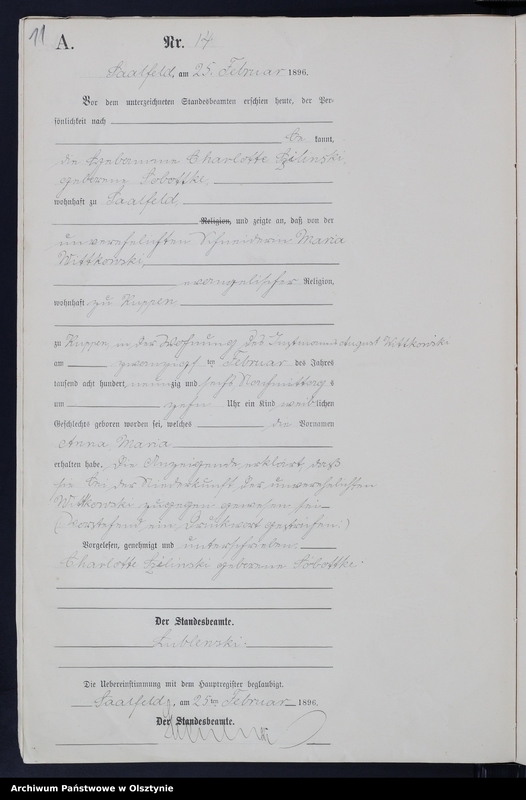 11
A. Nr. 14
Saalfeld, am 25. Februar 1896.
Vor dem unterzeichneten Standesbeamten erschien heute, der Per-
sönlichkeit nach
be kannt,
die Hebamme Charlotte Zilinski,
geborene Sobottke,
wohnhaft zu Saalfeld,
Religion, und zeigte an, daß von der
unverehelichten Schneiderin Maria
Wittkowski,
evangelischer Religion,
wohnhaft zu Kuppen
zu Kuppen, in der Wohnung des Instmanns August Wittkowski
am zwanzigsten Februar des Jahres
tausend acht hundert neunzig und sechs Nachmittags
um zehn Uhr ein Kind weiblichen
Geschlechts geboren worden sei, welches die Vornamen
Anna Maria
erhalten habe. Die Anzeigende erklärt, daß
sie bei der Niederkunft der unverehelichten
Wittkowski zugegen gewesen sei.
(Vorstehend ein Druckwort gestrichen.)
Vorgelesen, genehmigt und unterschrieben.
Charlotte Zilinski geborene Sobottke.
Der Standesbeamte.
Lublewski.
Die Uebereinstimmung mit dem Hauptregister beglaubigt.
Saalfeld, am 25ten Februar 1896.
Der Standesbeamte.
Archiwum Państwowe w Olsztynie